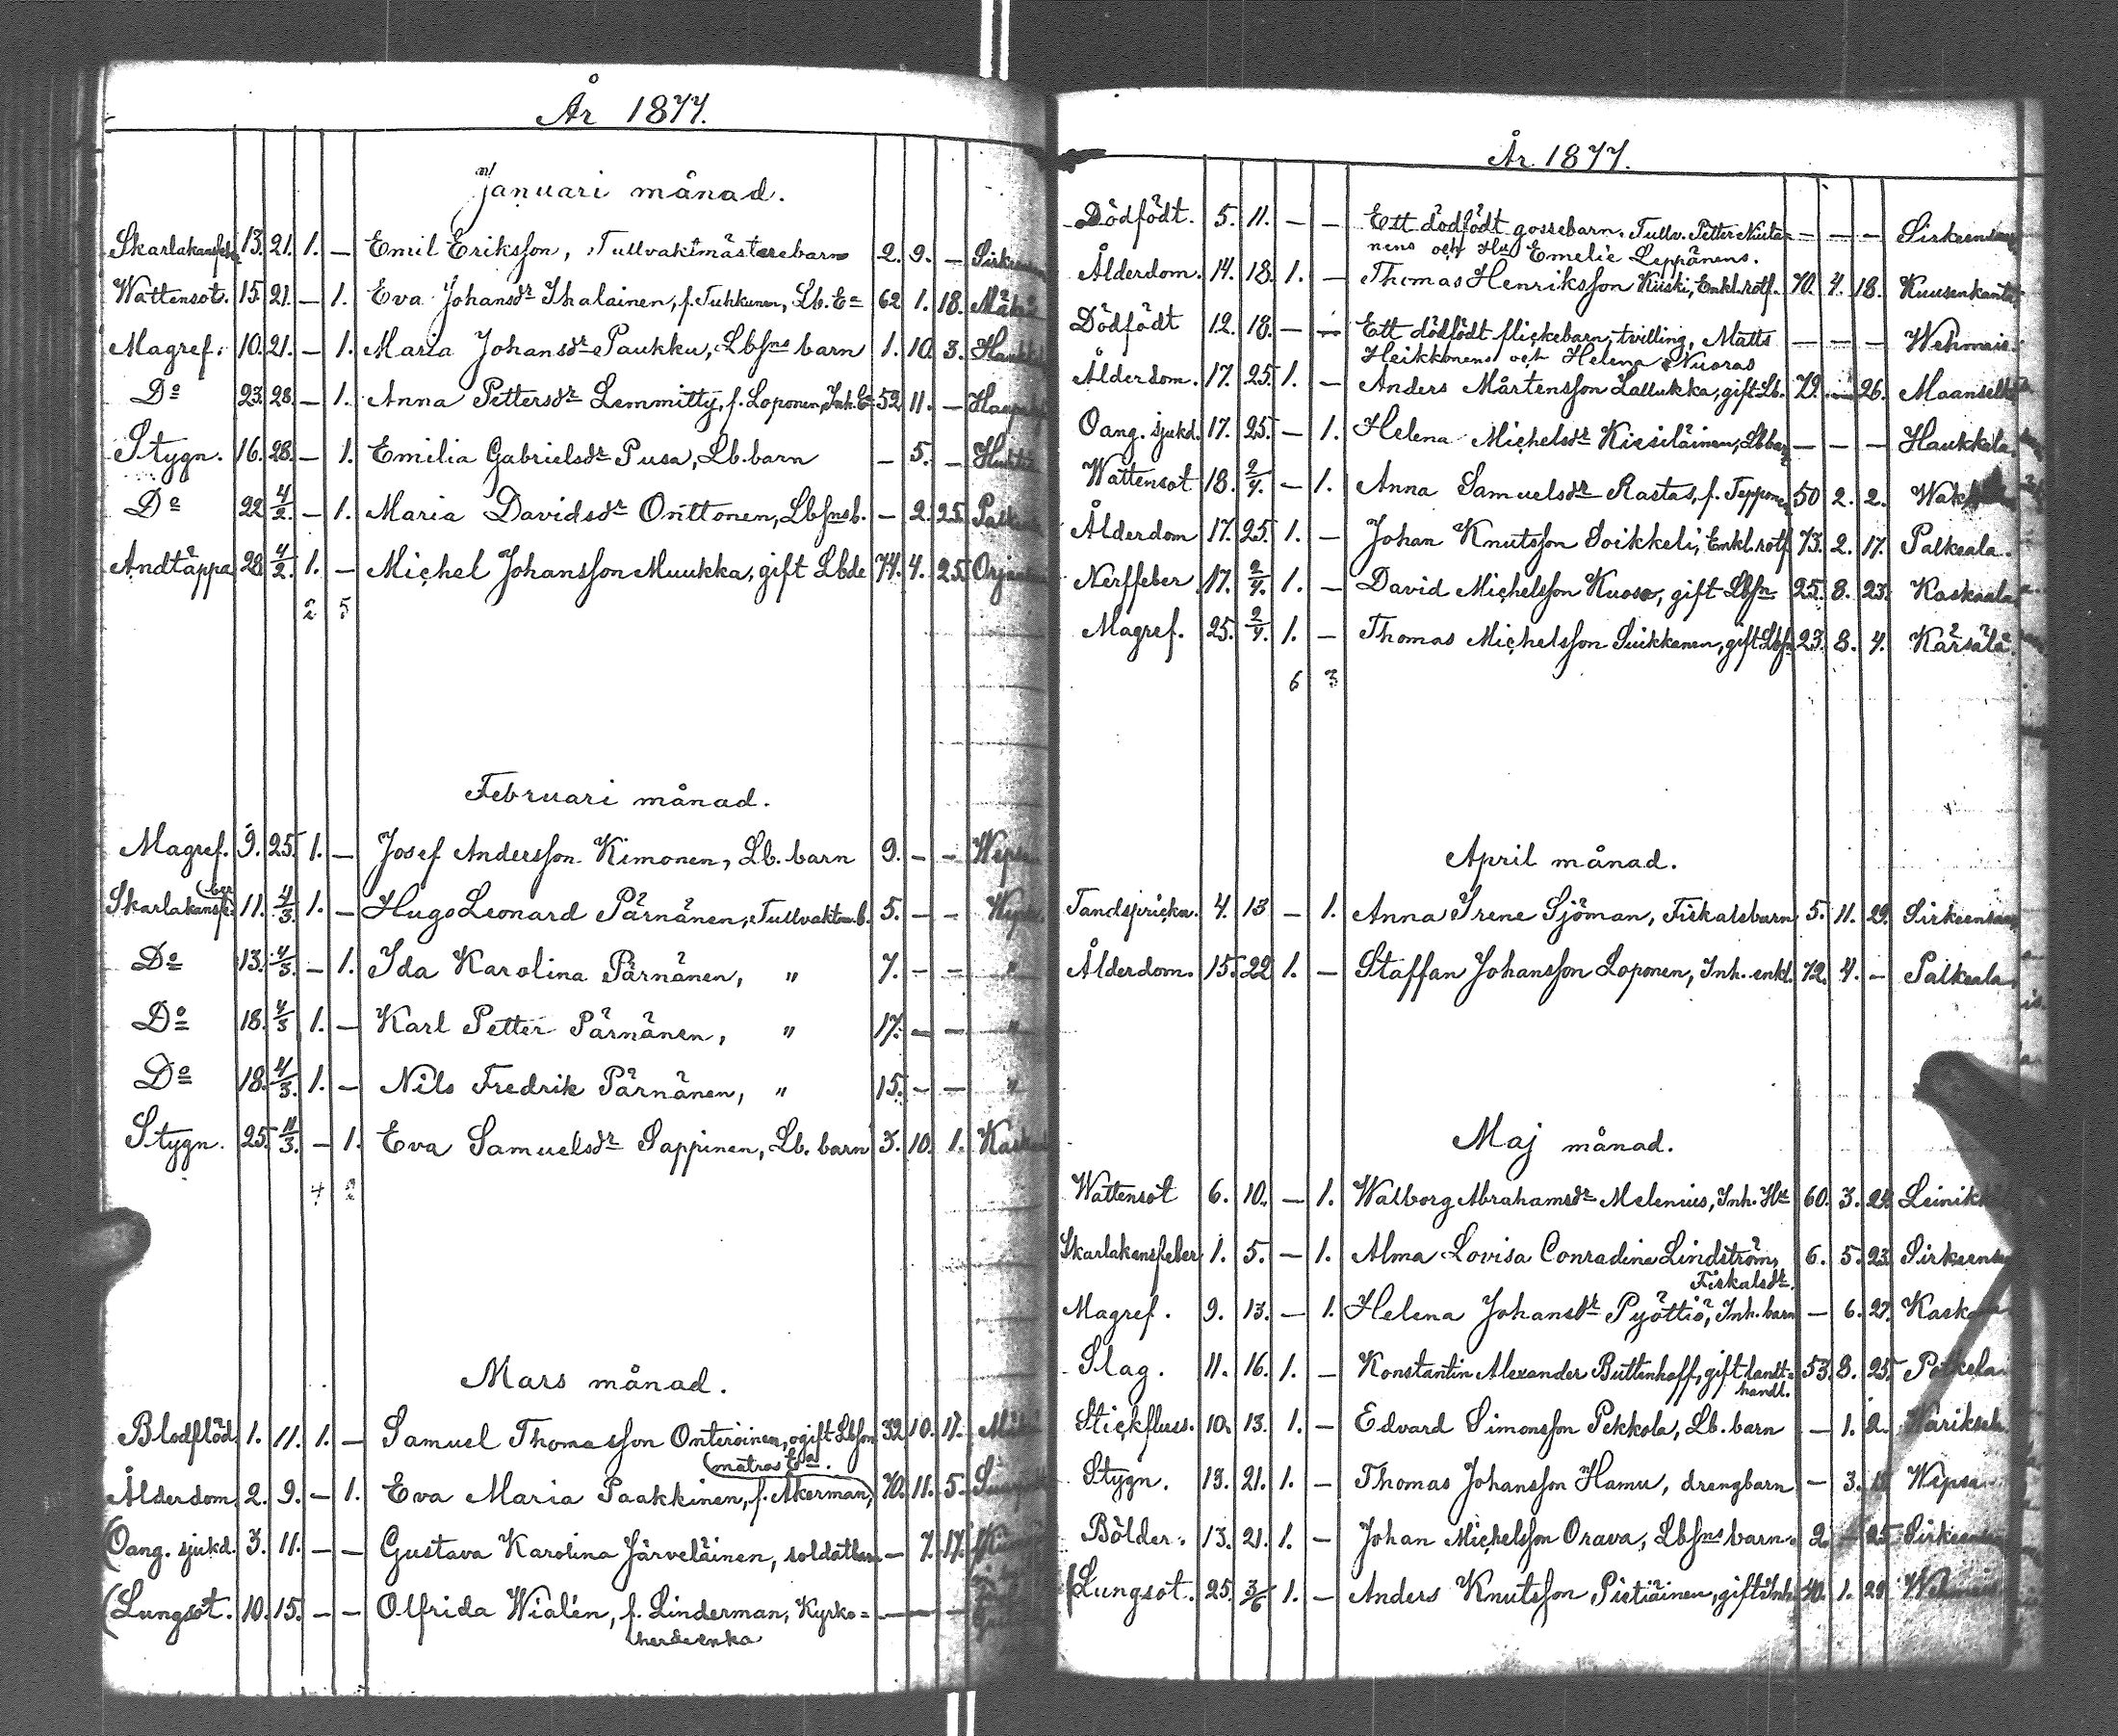 År 1877.
Januari månad.
Skarlakansfeb. 13. 21. 1. — Emil Eriksson, Tullvaktmästarebarn 2. 9. —
Wattensot. 15. 21. — 1. Eva Johansdr Ihalainen, f. Tuhkunen, Lb. Ea 62 1. 18.
Magref. 10. 21. — 1. Maria Johansdr Paukku, Lbsns barn 1. 10. 3.
Do 23. 28. — 1. Anna Pettersdr Lemmitty, f. Loponen, Inh. Ea 52. 11. —
Stygn. 16. 28. — 1. Emilia Gabrielsdr Pusa, Lb. barn — 5. —
Do 22 4/2. — 1. Maria Davidsdr Onttonen, Lbsns b. — 2. 25.
Andtäppa 28 4/2. 1. — Michel Johansson Muukka, gift Lbde 74. 4. 25.
2 5
Februari månad.
Magref. 9. 25. 1. — Josef Andersson Kimonen, Lb. barn 9. — —
(ber
Skarlakansfe. 11. 4/3 1. — Hugo Leonard Pärnänen, Tullvaktm. b. 5. — —
Do 13. 4/3. — 1. Ida Karolina Pärnänen, " 7. — — "
Do 18. 4/3 1. — Karl Petter Pärnänen, " 17. — — "
Do 18. 4/3. 1. — Nils Fredrik Pärnänen, " 15. — — "
Stygn. 25. 11/3. — 1. Eva Samuelsdr Sappinen, Lb. barn 3. 10. 1.
4 2
Mars månad.
Blodflöd. 1. 11. 1. — Samuel Thomasson Onteroinen, ogift Lbson 32 10. 17.
(matros Ea.
Ålderdom. 2. 9. — 1. Eva Maria Paakkinen, f. Åkerman, 70. 11. 5.
(Oang. sjukd. 3. 11. — — Gustava Karolina Järveläinen, soldatbarn — 7. 17.
(Lungsot. 10. 15. — — Olfrida Wialén, f. Linderman, Kyrko= — — —
herdeenka
År 1877.
Dödfödt. 5. 11. — — Ett dödfödt gossebarn, Tullv. Petter — — —
nens och Hu Emelie Leppänens.
Ålderdom. 14. 18. 1. — Thomas Henriksson Kiiski, Enkl. rotf. 70. 4. 18.
Dödfödt 12. 18. — — Ett dödfödt flickebarn, tvilling, Matts — — —
Heikkonens och Helena Nuoras
Ålderdom. 17. 25. 1. — Anders Mårtensson Lallukka, gift Lb. 79. — 26.
Oang. sjukd. 17. 25. — 1. Helena Michelsdr Kiesiläinen, Lbbarn — — — Haukkala
Wattensot 18. 2/4. — 1. Anna Samuelsdr Rastas, f.Epponen 50 2. 2.
Ålderdom 17. 25. 1. — Johan Knutsson Soikkeli, Enkl. rotf 73. 2. 17. Palkeala.
Nerffeber 17. 2/4. 1. — David Michelsson Kuosa, gift Lbsn 25. 8. 23. Kaskeala
Magref. 25. 2/4. 1. — Thomas Michelsson Suikkanen, gift Lbsn 23. 8. 4. Kärsälä.
6 3
April månad.
Tandsprickn. 4. 13 — 1. Anna Irene Sjöman, Fiskalsbarn 5. 11. 29.
Ålderdom. 15. 22 1. — Staffan Johansson Loponen, Inh. enkl. 72. 4. — Palkeala
Maj månad.
Wattensot 6. 10. — 1. Walborg Abrahamsdr Melenius, Inh. Hu 60. 3. 24.
Skarlakansfeber 1. 5. — 1. Alma Lovisa Conradina Lindström, 6. 5. 23.
Fiskalsdr.
Magref. 9. 13. — 1. Helena Johansdr Pyöttiö, Inh. barn — 6. 27.
Slag. 11. 16. 1. — Konstantin Alexander Buttenhoff, gift landt= 53. 8. 25.
handl.
Stickfluss. 10. 13. 1. — Edvard Simonsson Pekkola, Lb. barn — 1. 2.
Stygn. 13. 21. 1. — Thomas Johansson Hamu, drengbarn — 3. Wepsa
Bölder. 13. 21. 1. — Johan Michelsson Orava, Lbsns barn. 2. — 25
(Lungsot. 25. 3/6 1. — Anders Knutsson Pietiäinen, gift Inh. 40. 1. 29